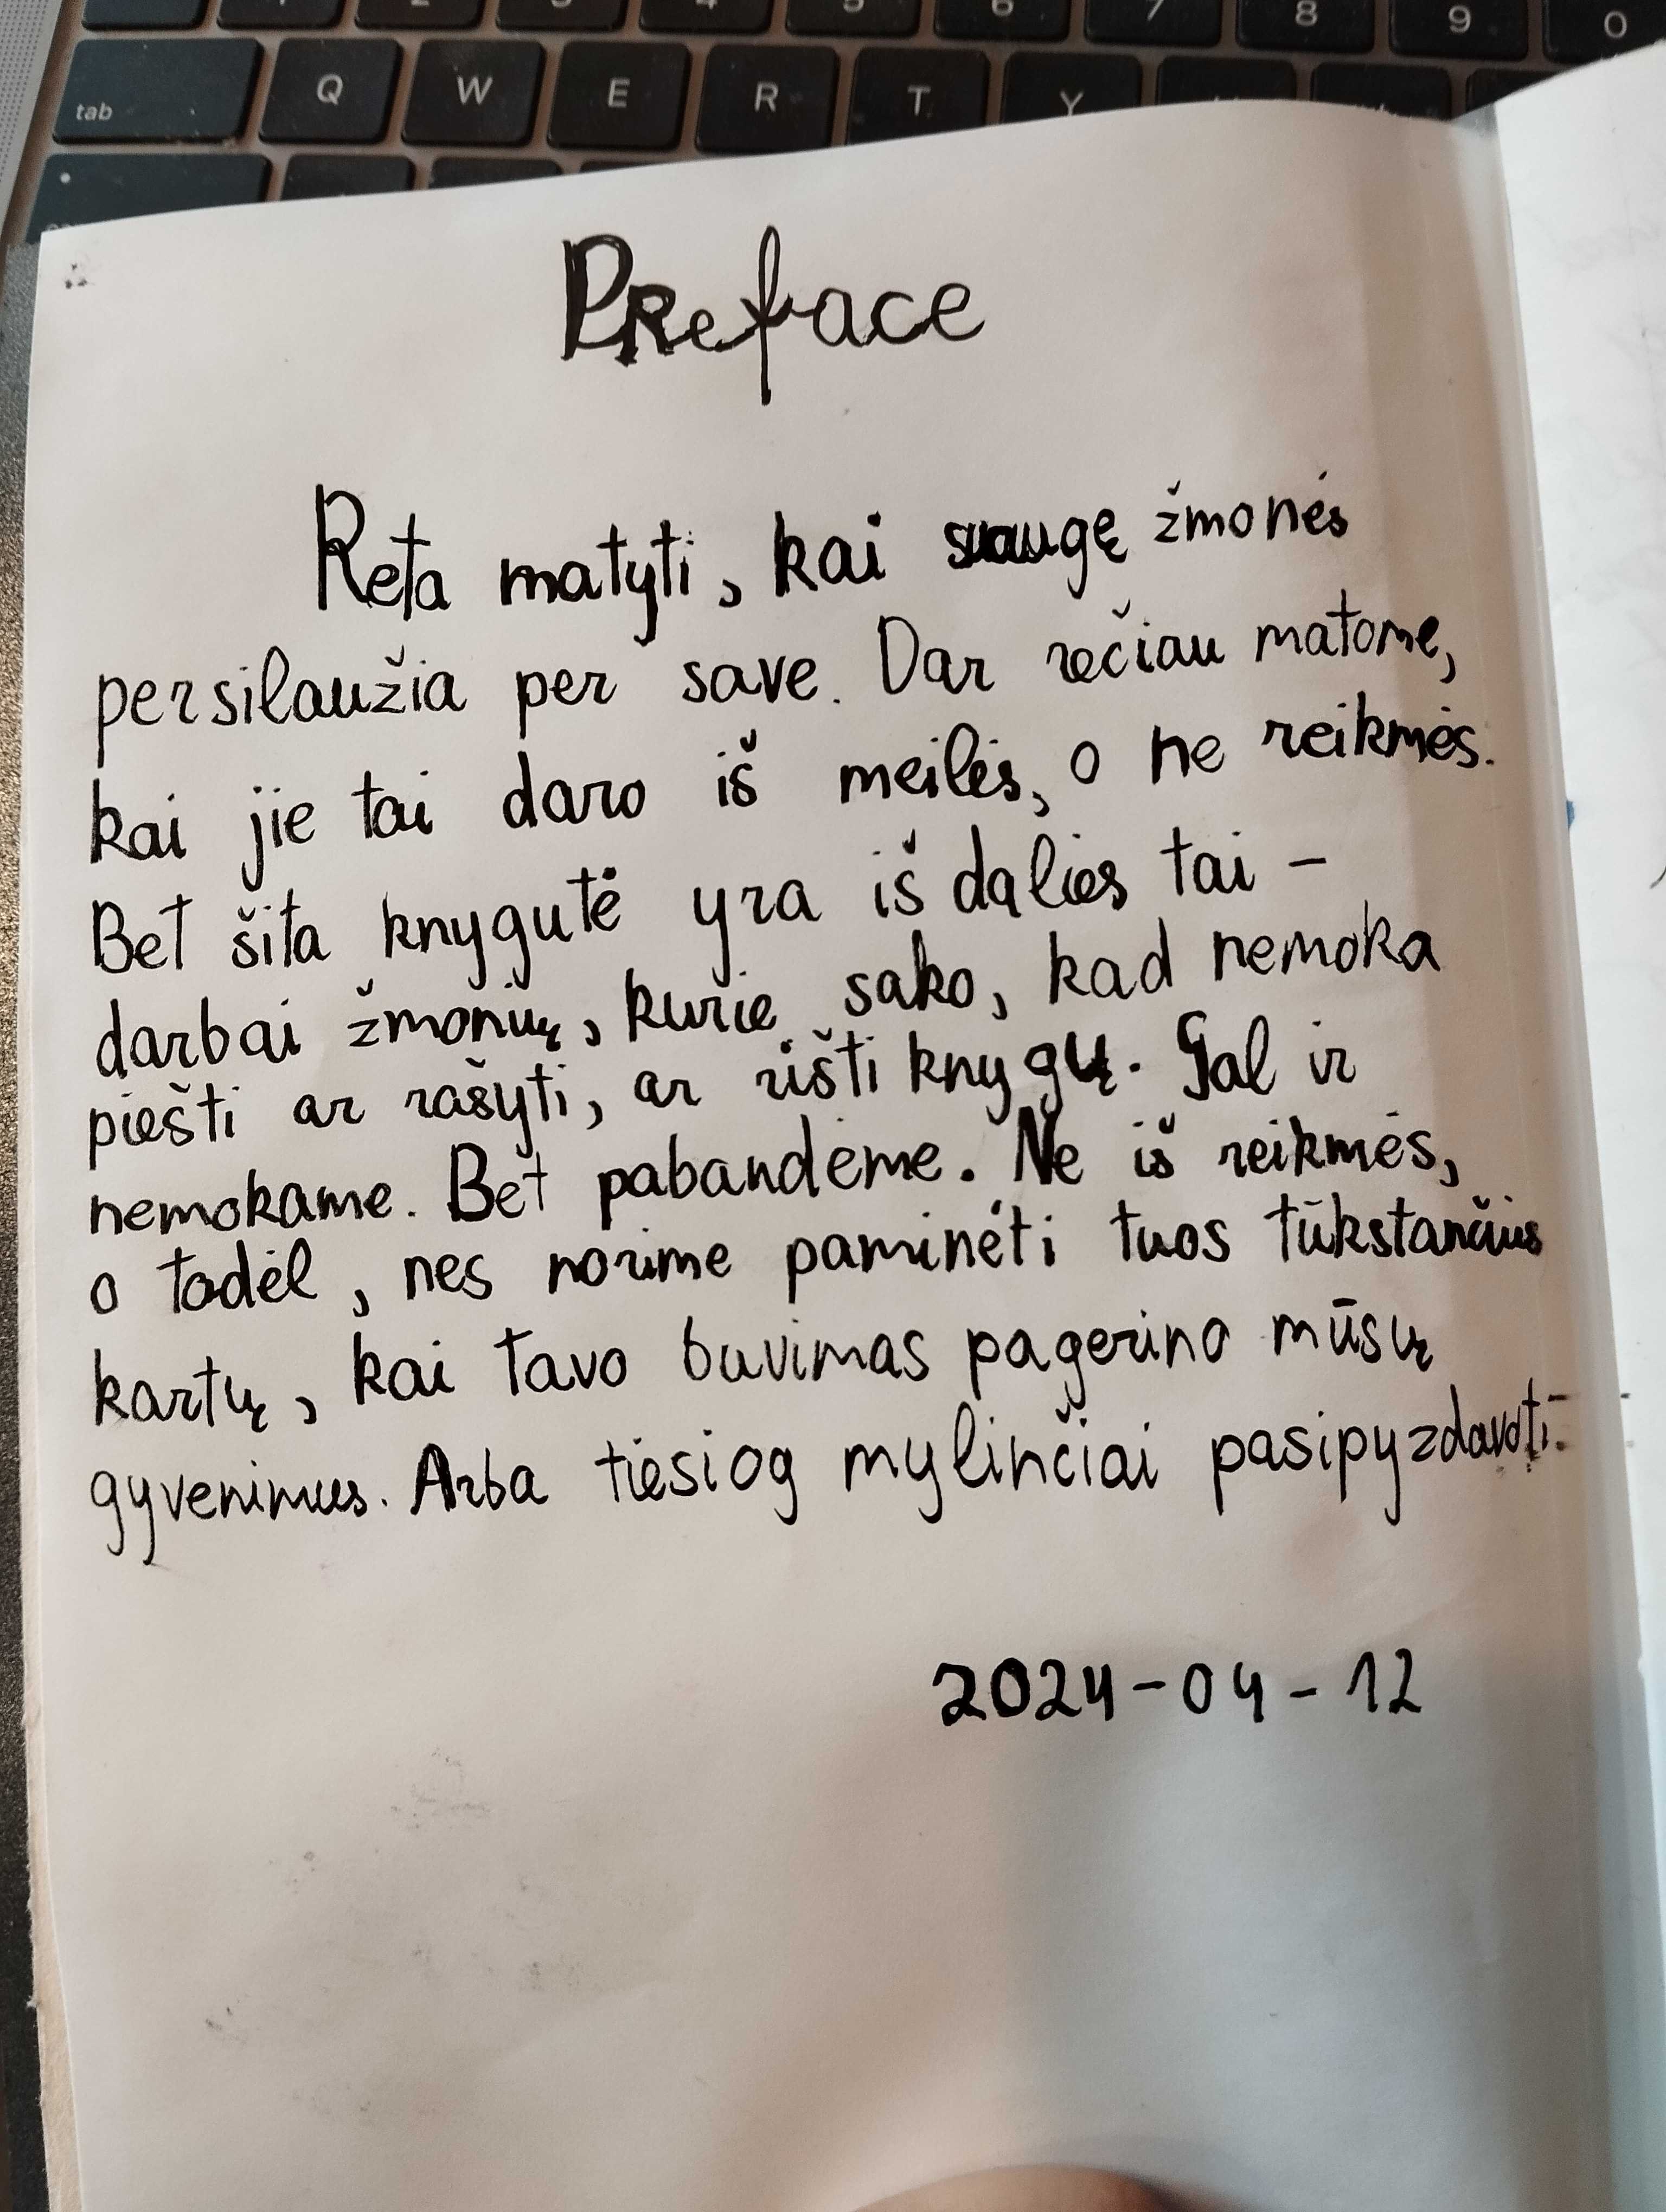 1 2 3 4 5 6 7 8 9 0
tab Q W E R T Y
Preface
Reta matyti, kai suaugę žmonės
persilaužia per save. Dar rečiau matome,
kai jie tai daro iš meilės, o ne reikmės.
Bet šita knygutė yra iš dalies tai –
darbai žmonių, kurie sako, kad nemoka
piešti ar rašyti, ar rišti knygų. Gal ir
nemokame. Bet pabandėme. Ne iš reikmės,
o todėl, nes norime paminėti tuos tūkstančius
kartų, kai tavo buvimas pagerino mūsų
gyvenimus. Arba tiesiog mylinčiai pasipyzdavoti.
2024-04-12